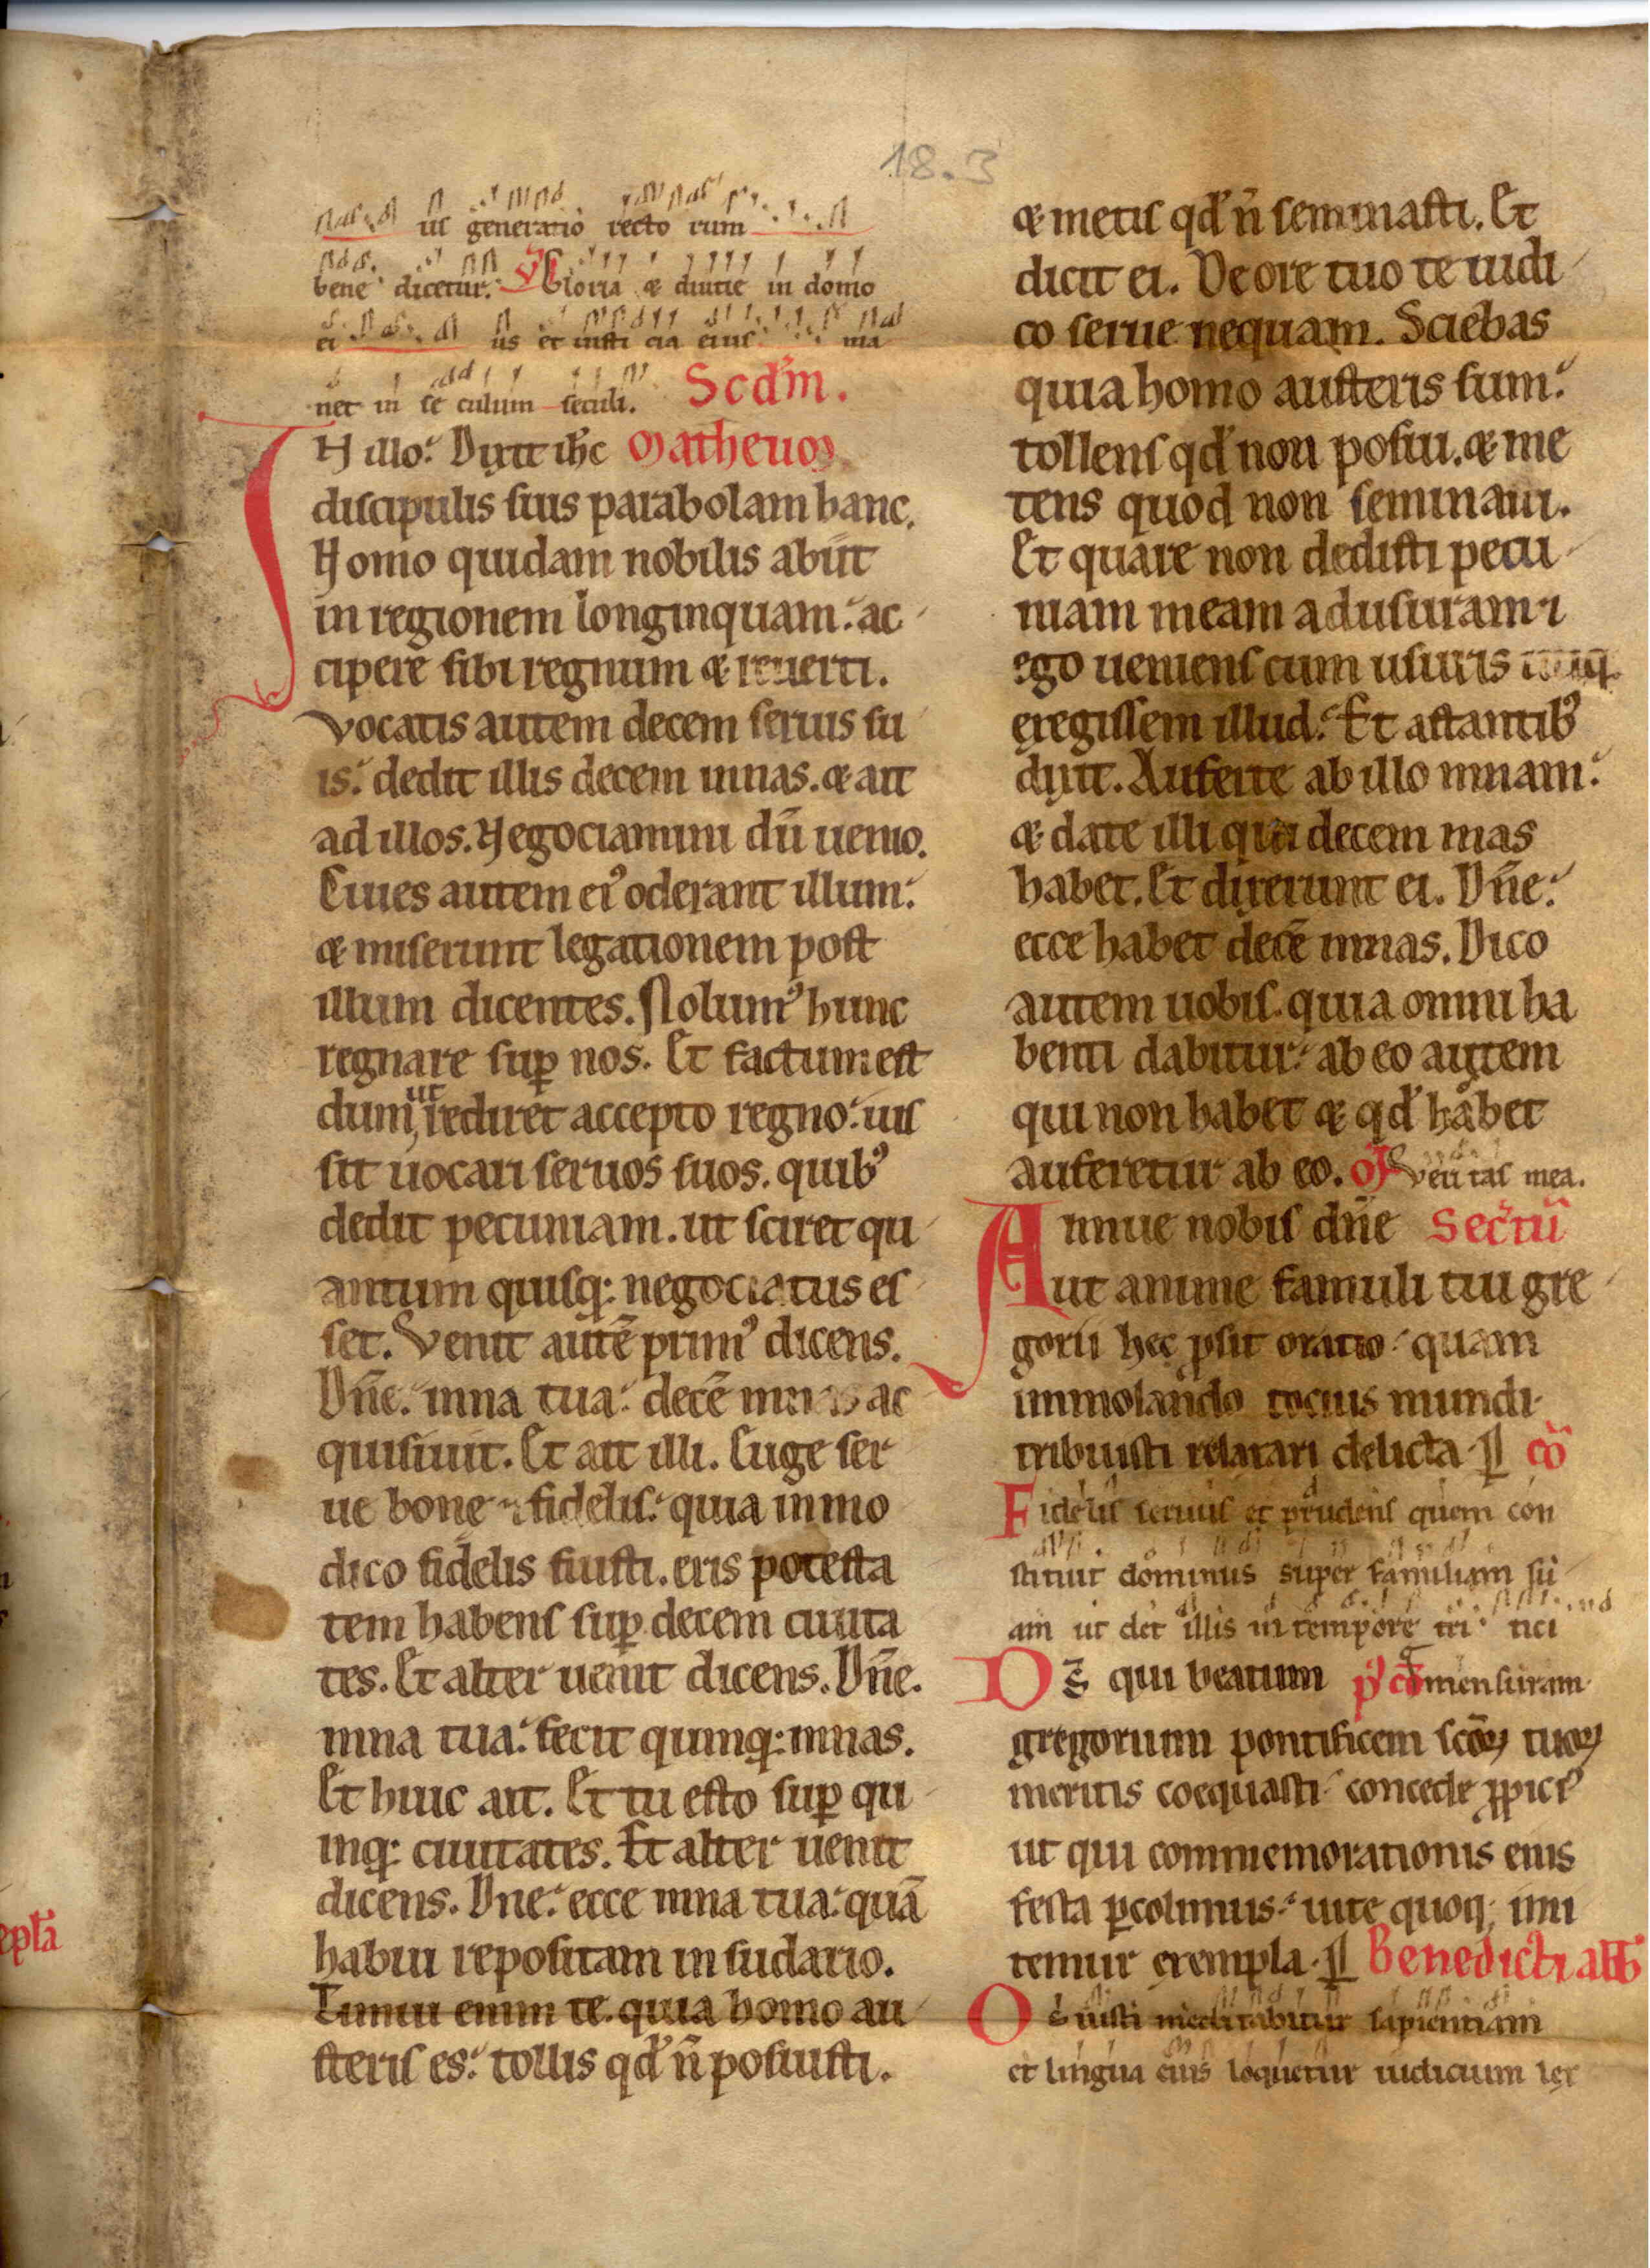 18.3
ius generatio recto rum
bene dicetur. V Gloria & diuitie in domo
ei us et iusti cia eius ma
net in se culum seculi. Scdm.
IN illo. Dixit ihc Matheum
discipulis suis parabolam hanc.
Homo quidam nobilis abiit
in regionem longinquam. ac
cipere sibi regnum & reuerti.
Vocatis autem decem seruis su
is. dedit illis decem mnas. & ait
ad illos. Negociamini dū uenio.
Ciues autem eiꝰ oderant illum.
& miserunt legationem post
illum dicentes. Nolumꝰ hunc
regnare suꝑ nos. Et factum est
dum rediret accepto regno. ius
sit uocari seruos suos. quibꝰ
dedit pecuniam. ut sciret qu
antum quisq; negociatus es
set. Venit autē primꝰ dicens.
Dn̄e. mna tua. decē mnas ac
quisiuit. Et ait illi. Euge ser
ue bone & fidelis. quia in mo
dico fidelis fuisti. eris potesta
tem habens suꝑ decem ciuita
tes. Et alter uenit dicens. Dn̄e.
mna tua. fecit quinq; mnas.
Et huic ait. Et tu esto suꝑ qu
inq; ciuitates. Et alter uenit
dicens. Dn̄e. ecce mna tua. quā
habui repositam in sudario.
Timui enim te. quia homo au
steris es. tollis qd̄ n̄ posuisti.
& metis qd̄ n̄ seminasti. Et
dicit ei. De ore tuo te iudi
co serue nequam. Sciebas
quia homo austeris sum.
tollens qd̄ non posui. & me
tens quod non seminaui.
Et quare non dedisti pecu
niam meam ad usuram. &
ego ueniens cum usuris utiq;
exegissem illud. Et astantibꝰ
dixit. Auferte ab illo mnam.
& date illi qui decem mas
habet. Et dixerunt ei. Dn̄e.
ecce habet decē mnas. Dico
autem uobis. quia omni ha
benti dabitur. ab eo autem
qui non habet & qd̄ habet
auferetur ab eo. Of Veritas mea.
Annue nobis dn̄e Secrtū
ut anime famuli tui gre
gorii hec ꝓsit oratio. quam
immolando tocius mundi
tribuisti relaxari delicta. P cō
Fidelis seruus et prudens quem con
stituit dominus super familiam su
am ut det illis in tempore tri tici
Ds̄ qui beatum p̄ cō mensuram
gregorium pontificem sc̄oꝝ tuoꝝ
meritis coequasti. concede ꝓpiciꝰ
ut qui commemorationis eius
festa ꝑcolimus. uite quoq; imi
temur exempla. P Benedicti abb
Os iusti meditabitur sapientiam
et lingua eius loquetur iudicium lex